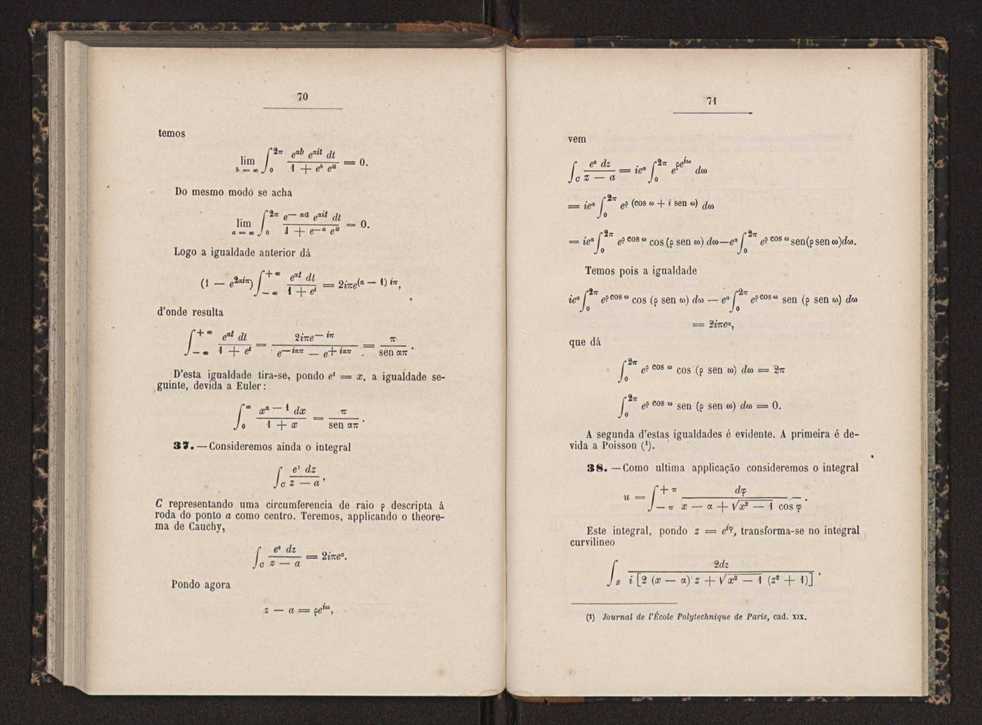 70
temos
lim_{b = ∞} ∫_0^{2π} e^{ab} e^{ait} dt / (1 + e^b e^{it}) = 0.
Do mesmo modo se acha
lim_{a = ∞} ∫_0^{2π} e^{— aa} e^{ait} dt / (1 + e^{—a} e^{it}) = 0.
Logo a igualdade anterior dá
(1 — e^{2aiπ}) ∫_{— ∞}^{+ ∞} e^{at} dt / (1 + e^t) = 2iπe^{(a — 1) iπ},
d'onde resulta
∫_{— ∞}^{+ ∞} e^{at} dt / (1 + e^t) = 2iπe^{— iπ} / (e^{—iaπ} — e^{+ iaπ}) = π / sen aπ.
D'esta igualdade tira-se, pondo e^t = x, a igualdade se-
guinte, devida a Euler:
∫_0^∞ x^{a — 1} dx / (1 + x) = π / sen aπ.
37. — Consideremos ainda o integral
∫_C e^z dz / (z — a),
C representando uma circumferencia de raio ρ descripta á
roda do ponto a como centro. Teremos, applicando o theore-
ma de Cauchy,
∫_C e^z dz / (z — a) = 2iπe^a.
Pondo agora
z — a = ρe^{iω},
71
vem
∫_C e^z dz / (z — a) = ie^a ∫_0^{2π} e^{ρe^{iω}} dω
= ie^a ∫_0^{2π} e^{ρ (cos ω + i sen ω)} dω
= ie^a ∫_0^{2π} e^{ρ cos ω} cos (ρ sen ω) dω — e^a ∫_0^{2π} e^{ρ cos ω} sen (ρ sen ω) dω.
Temos pois a igualdade
ie^a ∫_0^{2π} e^{ρ cos ω} cos (ρ sen ω) dω — e^a ∫_0^{2π} e^{ρ cos ω} sen (ρ sen ω) dω
= 2iπe^a,
que dá
∫_0^{2π} e^{ρ cos ω} cos (ρ sen ω) dω = 2π
∫_0^{2π} e^{ρ cos ω} sen (ρ sen ω) dω = 0.
A segunda d'estas igualdades é evidente. A primeira é de-
vida a Poisson (¹).
38. — Como ultima applicação consideremos o integral
u = ∫_{— π}^{+ π} dφ / (x — α + √(x² — 1) cos φ).
Este integral, pondo z = e^{iφ}, transforma-se no integral
curvilineo
∫_s 2dz / (i [2 (x — α) z + √(x² — 1) (z² + 1)]).
(¹) Journal de l'École Polytechnique de Paris, cad. XIX.